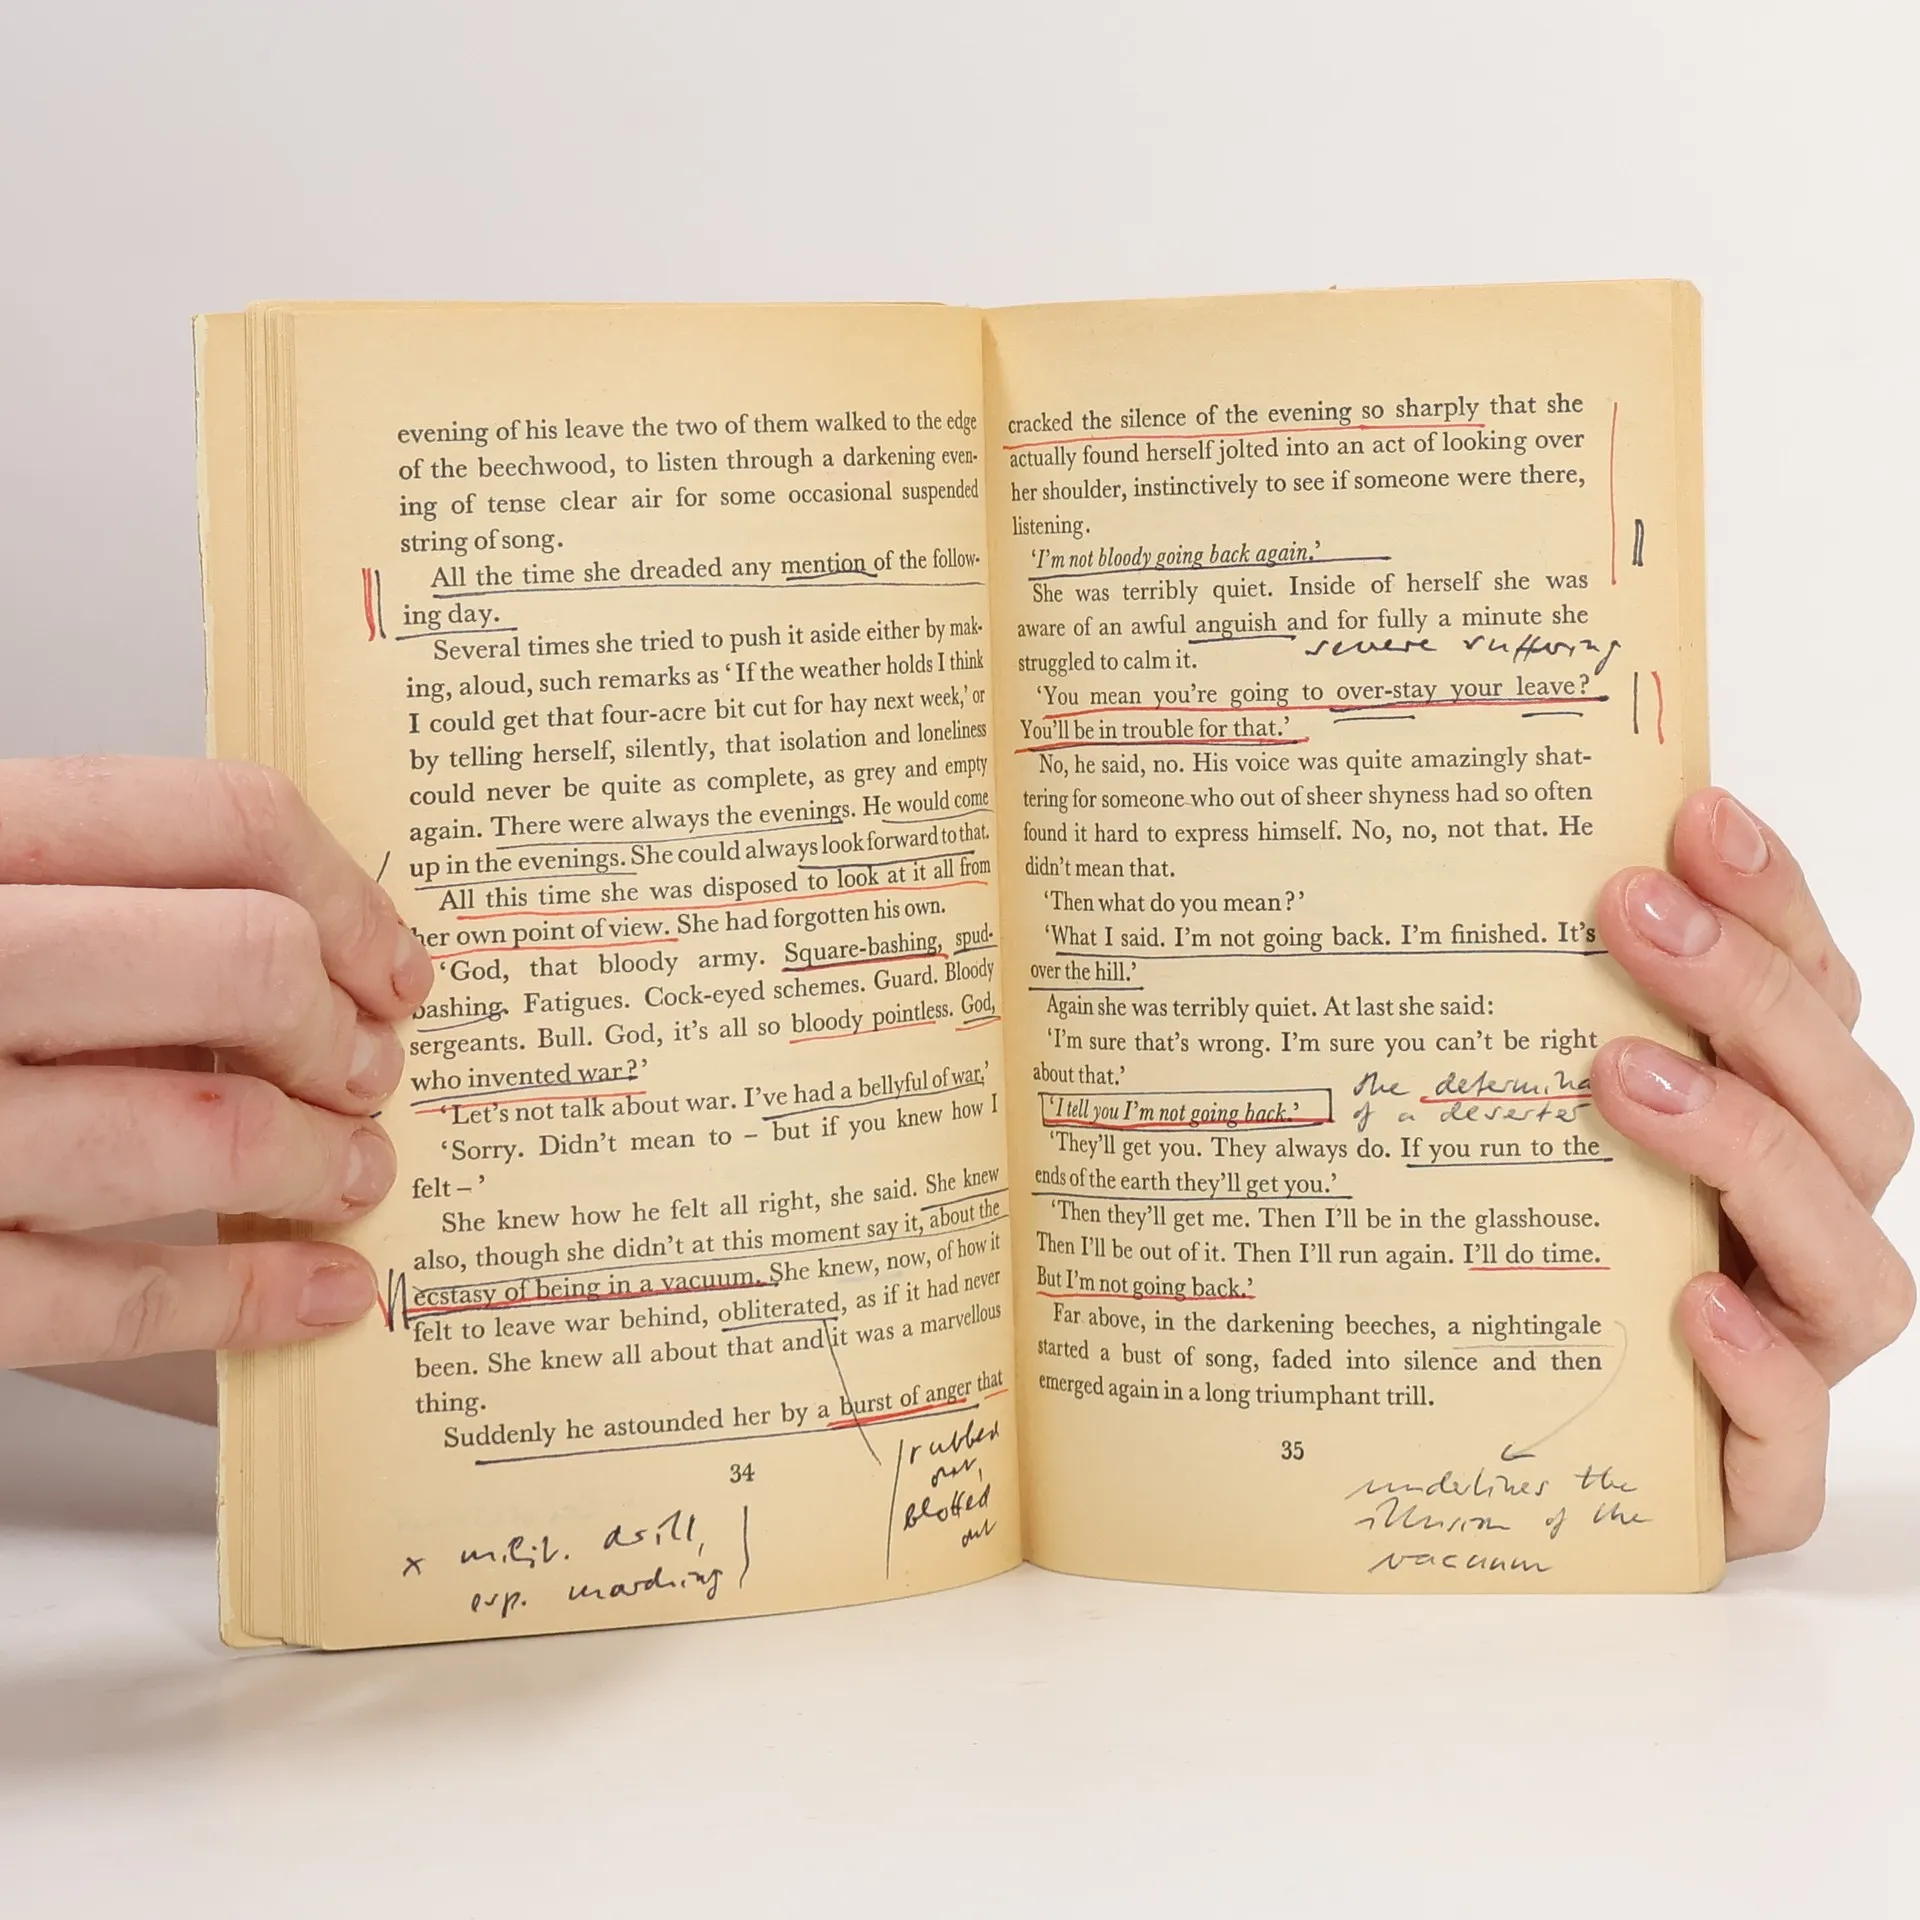 evening of his leave the two of them walked to the edge
of the beechwood, to listen through a darkening even-
ing of tense clear air for some occasional suspended
string of song.
All the time she dreaded any mention of the follow-
ing day.
Several times she tried to push it aside either by mak-
ing, aloud, such remarks as ‘If the weather holds I think
I could get that four-acre bit cut for hay next week,’ or
by telling herself, silently, that isolation and loneliness
could never be quite as complete, as grey and empty
again. There were always the evenings. He would come
up in the evenings. She could always look forward to that.
All this time she was disposed to look at it all from
her own point of view. She had forgotten his own.
‘God, that bloody army. Square-bashing, spud-
bashing. Fatigues. Cock-eyed schemes. Guard. Bloody
sergeants. Bull. God, it’s all so bloody pointless. God,
who invented war?’
‘Let’s not talk about war. I’ve had a bellyful of war.’
‘Sorry. Didn’t mean to – but if you knew how I
felt – ’
She knew how he felt all right, she said. She knew
also, though she didn’t at this moment say it, about the
ecstasy of being in a vacuum. She knew, now, of how it
felt to leave war behind, obliterated, as if it had never
been. She knew all about that and it was a marvellous
thing.
Suddenly he astounded her by a burst of anger that
34
rubbed
out,
blotted
out
x milit. drill,
esp. marching
cracked the silence of the evening so sharply that she
actually found herself jolted into an act of looking over
her shoulder, instinctively to see if someone were there,
listening.
‘I’m not bloody going back again.’
She was terribly quiet. Inside of herself she was
aware of an awful anguish and for fully a minute she
severe suffering
struggled to calm it.
‘You mean you’re going to over-stay your leave?
You’ll be in trouble for that.’
No, he said, no. His voice was quite amazingly shat-
tering for someone who out of sheer shyness had so often
found it hard to express himself. No, no, not that. He
didn’t mean that.
‘Then what do you mean?’
‘What I said. I’m not going back. I’m finished. It’s
over the hill.’
Again she was terribly quiet. At last she said:
‘I’m sure that’s wrong. I’m sure you can’t be right
about that.’
the determina
‘I tell you I’m not going back.’
of a deserter
‘They’ll get you. They always do. If you run to the
ends of the earth they’ll get you.’
‘Then they’ll get me. Then I’ll be in the glasshouse.
Then I’ll be out of it. Then I’ll run again. I’ll do time.
But I’m not going back.’
Far above, in the darkening beeches, a nightingale
started a bust of song, faded into silence and then
emerged again in a long triumphant trill.
35
underlines the
illusion of the
vacuum